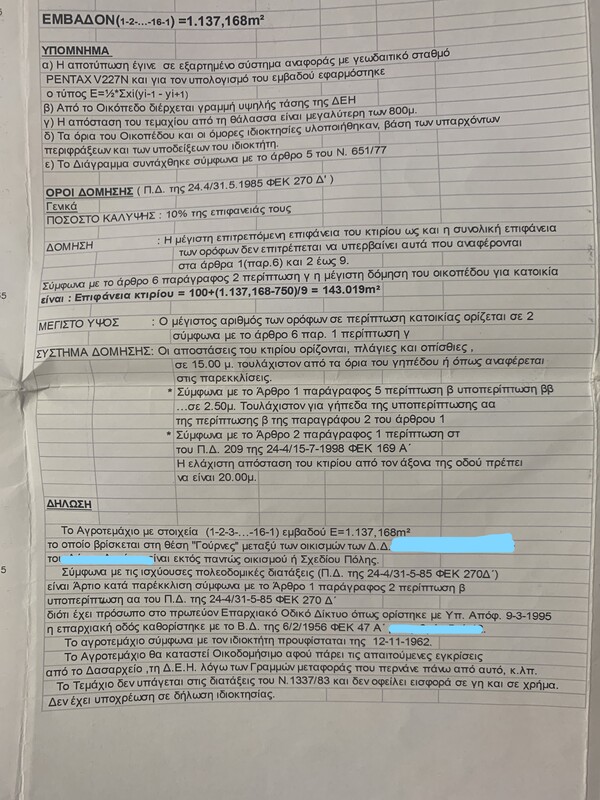 ΕΜΒΑΔΟΝ(1-2-...-16-1) =1.137,168m²
ΥΠΟΜΝΗΜΑ
α) Η αποτύπωση έγινε σε εξαρτημένο σύστημα αναφοράς με γεωδαιτικό σταθμό
PENTAX V227N και για τον υπολογισμό του εμβαδού εφαρμόστηκε
ο τύπος Ε=½*Σxi(yi-1 - yi+1)
β) Από το Οικόπεδο διέρχεται γραμμή υψηλής τάσης της ΔΕΗ
γ) Η απόσταση του τεμαχίου από τη θάλασσα είναι μεγαλύτερη των 800μ.
δ) Τα όρια του Οικοπέδου και οι όμορες ιδιοκτησίες υλοποιήθηκαν, βάση των υπαρχόντων
περιφράξεων και των υποδείξεων του ιδιοκτήτη.
ε) Το Διάγραμμα συντάχθηκε σύμφωνα με το άρθρο 5 του Ν. 651/77
ΟΡΟΙ ΔΟΜΗΣΗΣ ( Π.Δ. της 24.4/31.5.1985 ΦΕΚ 270 Δ΄ )
Γενικά
ΠΟΣΟΣΤΟ ΚΑΛΥΨΗΣ : 10% της επιφανείας τους
ΔΟΜΗΣΗ : Η μέγιστη επιτρεπόμενη επιφάνεια του κτιρίου ως και η συνολική επιφάνεια
των ορόφων δεν επιτρέπεται να υπερβαίνει αυτά που αναφέρονται
στα άρθρα 1(παρ.6) και 2 έως 9.
Σύμφωνα με το άρθρο 6 παράγραφος 2 περίπτωση γ η μέγιστη δόμηση του οικοπέδου για κατοικία
είναι : Επιφάνεια κτιρίου = 100+(1.137,168-750)/9 = 143.019m²
ΜΕΓΙΣΤΟ ΥΨΟΣ : Ο μέγιστος αριθμός των ορόφων σε περίπτωση κατοικίας ορίζεται σε 2
σύμφωνα με το άρθρο 6 παρ. 1 περίπτωση γ
ΣΥΣΤΗΜΑ ΔΟΜΗΣΗΣ: Οι αποστάσεις του κτιρίου ορίζονται, πλάγιες και οπίσθιες ,
σε 15.00 μ. τουλάχιστον από τα όρια του γηπέδου ή όπως αναφέρεται
στις παρεκκλίσεις.
* Σύμφωνα με το Άρθρο 1 παραγράφος 5 περίπτωση β υποπερίπτωση ββ
...σε 2.50μ. Τουλάχιστον για γήπεδα της υποπερίπτωσης αα
της περίπτωσης β της παραγράφου 2 του άρθρου 1
* Σύμφωνα με το Άρθρο 2 παράγραφος 1 περίπτωση στ
του Π.Δ. 209 της 24-4/15-7-1998 ΦΕΚ 169 Α΄
Η ελάχιστη απόσταση του κτιρίου από τον άξονα της οδού πρέπει
να είναι 20.00μ.
ΔΗΛΩΣΗ
Το Αγροτεμάχιο με στοιχεία (1-2-3-...-16-1) εμβαδού Ε=1.137,168m²
το οποίο βρίσκεται στη θέση "Γούρνες" μεταξύ των οικισμών των Δ.Δ.
του είναι εκτός παντώς οικισμού ή Σχεδίου Πόλης.
Σύμφωνα με τις ισχύουσες πολεοδομικές διατάξεις (Π.Δ. της 24-4/31-5-85 ΦΕΚ 270Δ΄)
είναι Άρτιο κατά παρέκκλιση σύμφωνα με το Άρθρο 1 παράγραφος 2 περίπτωση β
υποπερίπτωση αα του Π.Δ. 24-4/31-5-85 ΦΕΚ 270 Δ΄
διότι έχει πρόσωπο στο πρωτεύον Επαρχιακό Οδικό Δίκτυο όπως ορίστηκε με Υπ. Απόφ. 9-3-1995
η επαρχιακή οδός καθορίστηκε με το Β.Δ. της 6/2/1956 ΦΕΚ 47 Α΄
Το αγροτεμάχιο σύμφωνα με τον ιδιοκτήτη προυφίσταται της 12-11-1962.
Το Αγροτεμάχιο θα καταστεί Οικοδομήσιμο αφού πάρει τις απαιτούμενες εγκρίσεις
από το Δασαρχείο ,τη Δ.Ε.Η. λόγω των Γραμμών μεταφοράς που περνάνε πάνω από αυτό, κ.λπ.
Το Τεμάχιο δεν υπάγεται στις διατάξεις του Ν.1337/83 και δεν οφείλει εισφορά σε γη και σε χρήμα.
Δεν έχει υποχρέωση σε δήλωση ιδιοκτησίας.